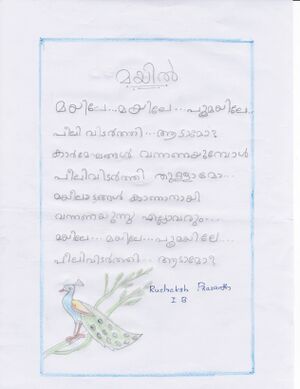 മയിൽ
മയിലേ...മയിലേ...പൂമയിലേ..
പീലി വിടർത്തി...ആടാമോ?
കാർമേഘങ്ങൾ വന്നണയുമ്പോൾ
പീലിവിടർത്തി തുള്ളാമോ...
മയിലാട്ടങ്ങൾ കാണാനായി
വന്നണയുന്നു എല്ലാവരും...
മയിലേ... മയിലേ...പൂമയിലേ...
പീലിവിടർത്തി...ആടാമോ?
Prasanth
I B